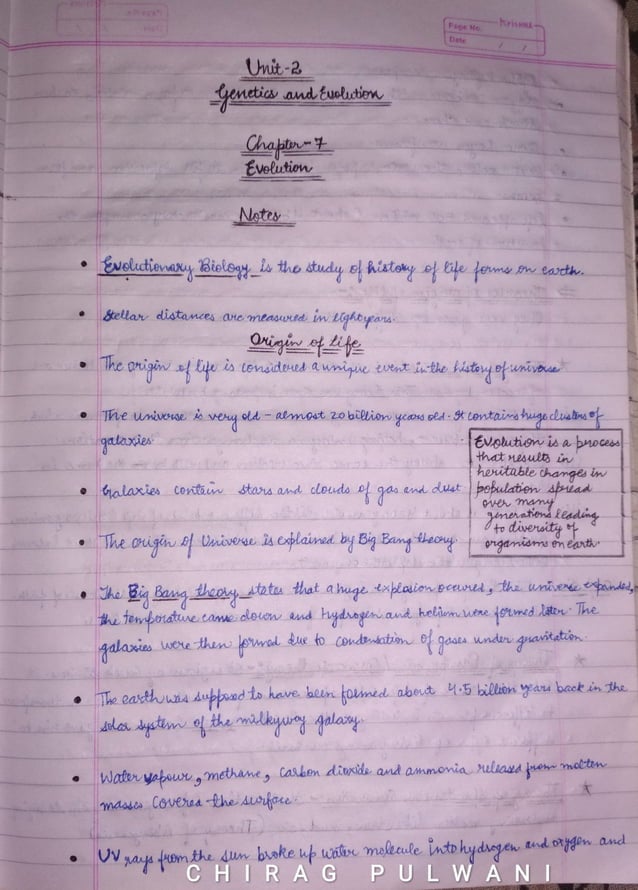 Page No.
Date / /
Unit-2
Genetics and Evolution
Chapter-7
Evolution
Notes
• Evolutionary Biology is the study of history of life forms on earth.
• Stellar distances are measured in lightyears.
Origin of life
• The origin of life is considered a unique event in the history of universe
• The universe is very old - almost 20 billion years old. It contains huge clusters of
galaxies.
Evolution is a process
that results in
heritable changes in
population spread
over many
generations leading
to diversity of
organisms on earth.
• Galaxies contain stars and clouds of gas and dust
• The origin of Universe is explained by Big Bang theory.
• The Big Bang theory states that a huge explosion occured, the universe expanded,
the temperature came down and hydrogen and helium were formed later. The
galaxies were then formed due to condensation of gases under gravitation.
• The earth was supposed to have been formed about 4.5 billion years back in the
solar system of the milkyway galaxy.
• Water vapour, methane, carbon dioxide and ammonia released from molten
masses covered the surface.
• UV rays from the sun broke up water molecule into hydrogen and oxygen and
CHIRAG PULWANI